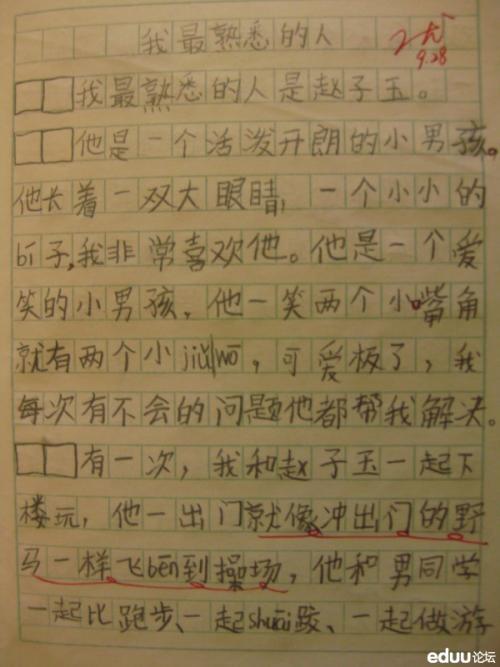 我最熟悉的人
优
9.28
我最熟悉的人是赵子玉。
他是一个活泼开朗的小男孩。
他长着一双大眼睛，一个小小的
bí子，我非常喜欢他。他是一个爱
笑的小男孩，他一笑两个小嘴角
就有两个小jiǔwō，可爱板了，我
每次有不会的问题他都帮我解决。
有一次，我和赵子玉一起下
楼玩，他一出门就像冲出门的野
马一样飞bēn到操场，他和男同学
一起比跑步、一起shuāi跤、一起做游
eduu论坛